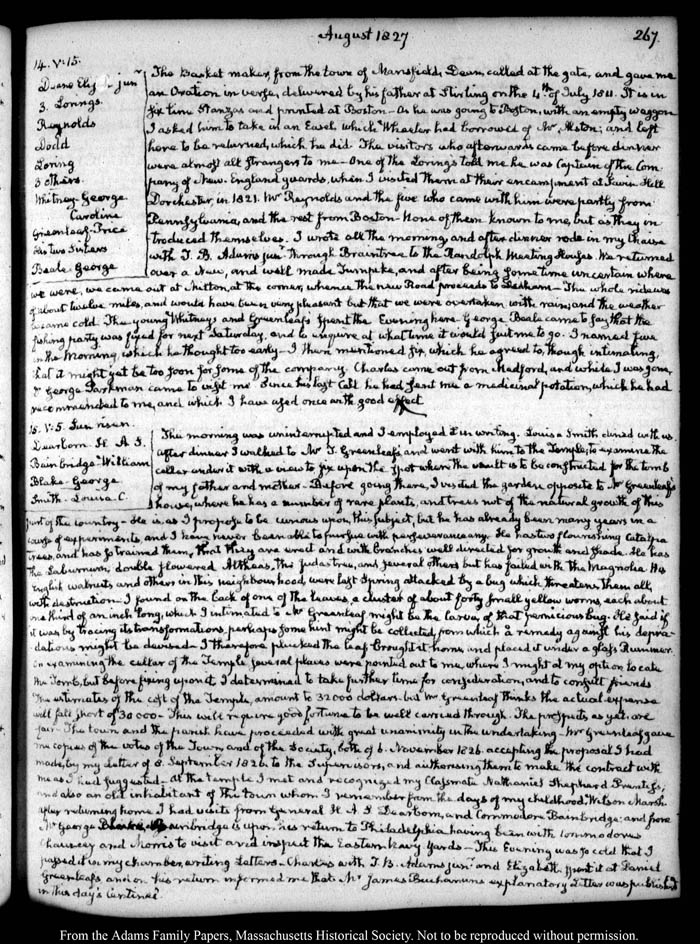 August 1827 267.
14. V:15.
Deane Eliz junr
3. Lorings.
Reynolds
Dodd
Loring
3 others
Whitney George
Caroline
Greenleaf-Price
his two Sisters
Beale-George
The Basket maker, from the town of Mansfield, Dean, called at the gate, and gave me
an Oration in verse, delivered by his father at Stirling on the 4th of July 1811. It is in
six line Stanzas and printed at Boston. As he was going to Boston, with an empty waggon
I asked him to take in an Ewe, which Wheeler had borrowed of Mr Alston; and left
here to be returned, which he did. The visitors who afterwards came before dinner
were almost all strangers to me. One of the Lorings told me he was Captain of the Com-
pany of New-England guards, when I visited them at their encampment at Savin-Hill
Dorchester, in 1821. Mr Reynolds and the five who came with him were partly from
Pennsylvania, and the rest from Boston. None of them known to me, but as they in-
troduced themselves. I wrote all the morning, and after dinner rode in my Chaise
with T. B. Adams junr through Braintree to the Randolph Meeting Houses. We returned
over a New, and well made Turnpike, and after being some time uncertain where
we were, we came out at Milton, at the corner, whence the new Road proceeds to Dedham. The whole ride was
of about twelve miles, and would have been very pleasant but that we were overtaken with rain, and the weather
became cold. The young Whitneys and Greenleafs spent the Evening here. George Beale came to say that the
fishing party was fixed for next Saturday, and to enquire at what time it would suit me to go. I named five
in the Morning, which he thought too early. I then mentioned six, which he agreed to, though intimating,
that it might yet be too soon for some of the company. Charles came out from Medford, and while I was gone,
Dr George Parkman came to visit me. Since his last Call he had sent me a medicinal potation, which he had
recommended to me, and which I have used once with good effect.
15. V:5. Sun risen.
Dearborn H. A. S.
Bainbridge William
Blake-George
Smith-Louisa C.
The morning was uninterrupted and I employed it in writing. Louisa Smith dined with us.
After dinner I walked to Mr T. Greenleaf's and went with him to the Temple, to examine the
cellar under it with a view to fix upon the spot where the vault is to be constructed for the tomb
of my father and mother. Before going there, I visited the garden opposite to Mr Greenleaf's
house, where he has a number of rare plants, and trees not of the natural growth of this
part of the country. He is, as I propose to be curious upon this subject, but he has already been many years in a
course of experiments, and I have never been able to pursue with perseverance any. He has two flourishing Catalpa
trees, and has so trained them, that they are erect and with branches well directed for growth and shade. He has
the Laburnum, double flowered Altheas, the Judas tree, and several others but has failed with the Magnolia. His
English walnuts, and others in this neighbourhood, were last Spring attacked by a bug which threatens them all,
with destruction. I found on the back of one of the leaves, a cluster of about forty small yellow worms, each about
one third of an inch long, which I intimated to Mr Greenleaf might be the larva, of that pernicious bug. He said if
it was by tracing its transformations, perhaps some hint might be collected, from which a remedy against his depre-
dations might be devised. I therefore plucked the leaf, brought it home, and placed it under a glass Rummer.
In examining the cellar of the Temple several places were pointed out to me, where I might at my option locate
the Tomb, but before fixing upon it, I determined to take further time for consideration, and to consult friends
The estimates of the cost of the Temple, amount to 32000 dollars. but Mr Greenleaf thinks the actual expense
will fall short of 30000. This will require good fortune to be well carried through. The prospects as yet are
fair. The town and the parish have proceeded with great unanimity in the undertaking. Mr Greenleaf gave
me copies of the votes of the Town, and of the Society, both of 6. November 1826. accepting the proposal I had
made, by my letter of 8. September 1826. to the Supervisors, and authorising them to make the contract with
me as I had suggested. At the temple I met and recognized my Classmate Nathaniel Shepherd Prentiss,
and also an old inhabitant of this town whom I remember from the days of my childhood, Wilson Marsh.
After returning home I had visits from General H. A. S. Dearborn, and Commodore Bainbridge; and from
Mr George Blake. Bainbridge is upon his return to Philadelphia having been with Commodores
Chauncey and Morris to visit and inspect the Eastern Navy Yards. This Evening was so cold that I
passed it in my chamber, writing Letters. Charles with T. B. Adams junr and Elizabeth spent it at Daniel
Greenleaf's and on his return informed me that Mr James Buchanan's explanatory Letter was published
in this day's Centinel.
From the Adams Family Papers, Massachusetts Historical Society. Not to be reproduced without permission.